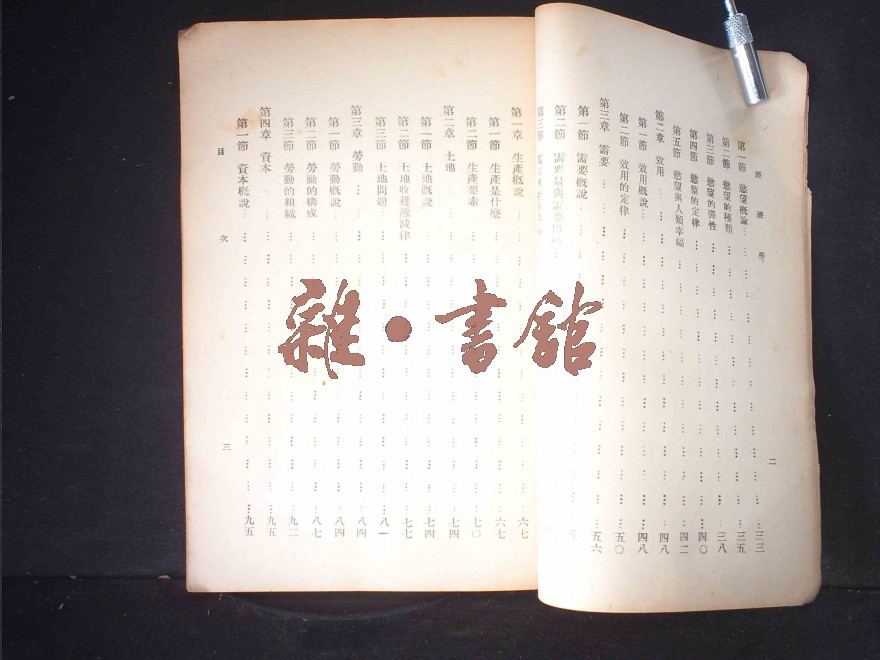 經濟學
二
第一節 慾望概論 三三
第二節 慾望的種類 三五
第三節 慾望的彈性 三八
第四節 慾望的定律 四〇
第五節 慾望與人類幸福 四二
第二章 效用 四八
第一節 效用概說 四八
第二節 效用的定律 五〇
第三章 需要 五六
第一節 需要概說
第二節 需要量與需要價格
第三節
第一章 生產概說 六七
第一節 生產是什麼 六七
第二節 生產要素 七〇
第二章 土地 七四
第一節 土地概說 七四
第二節 土地收穫遞減律 七七
第三節 土地問題 八一
第三章 勞動 八四
第一節 勞動概說 八四
第二節 勞動的構成 八七
第三節 勞動的組織 九二
第四章 資本 九五
第一節 資本概說 九五
目次
三
雜·書館